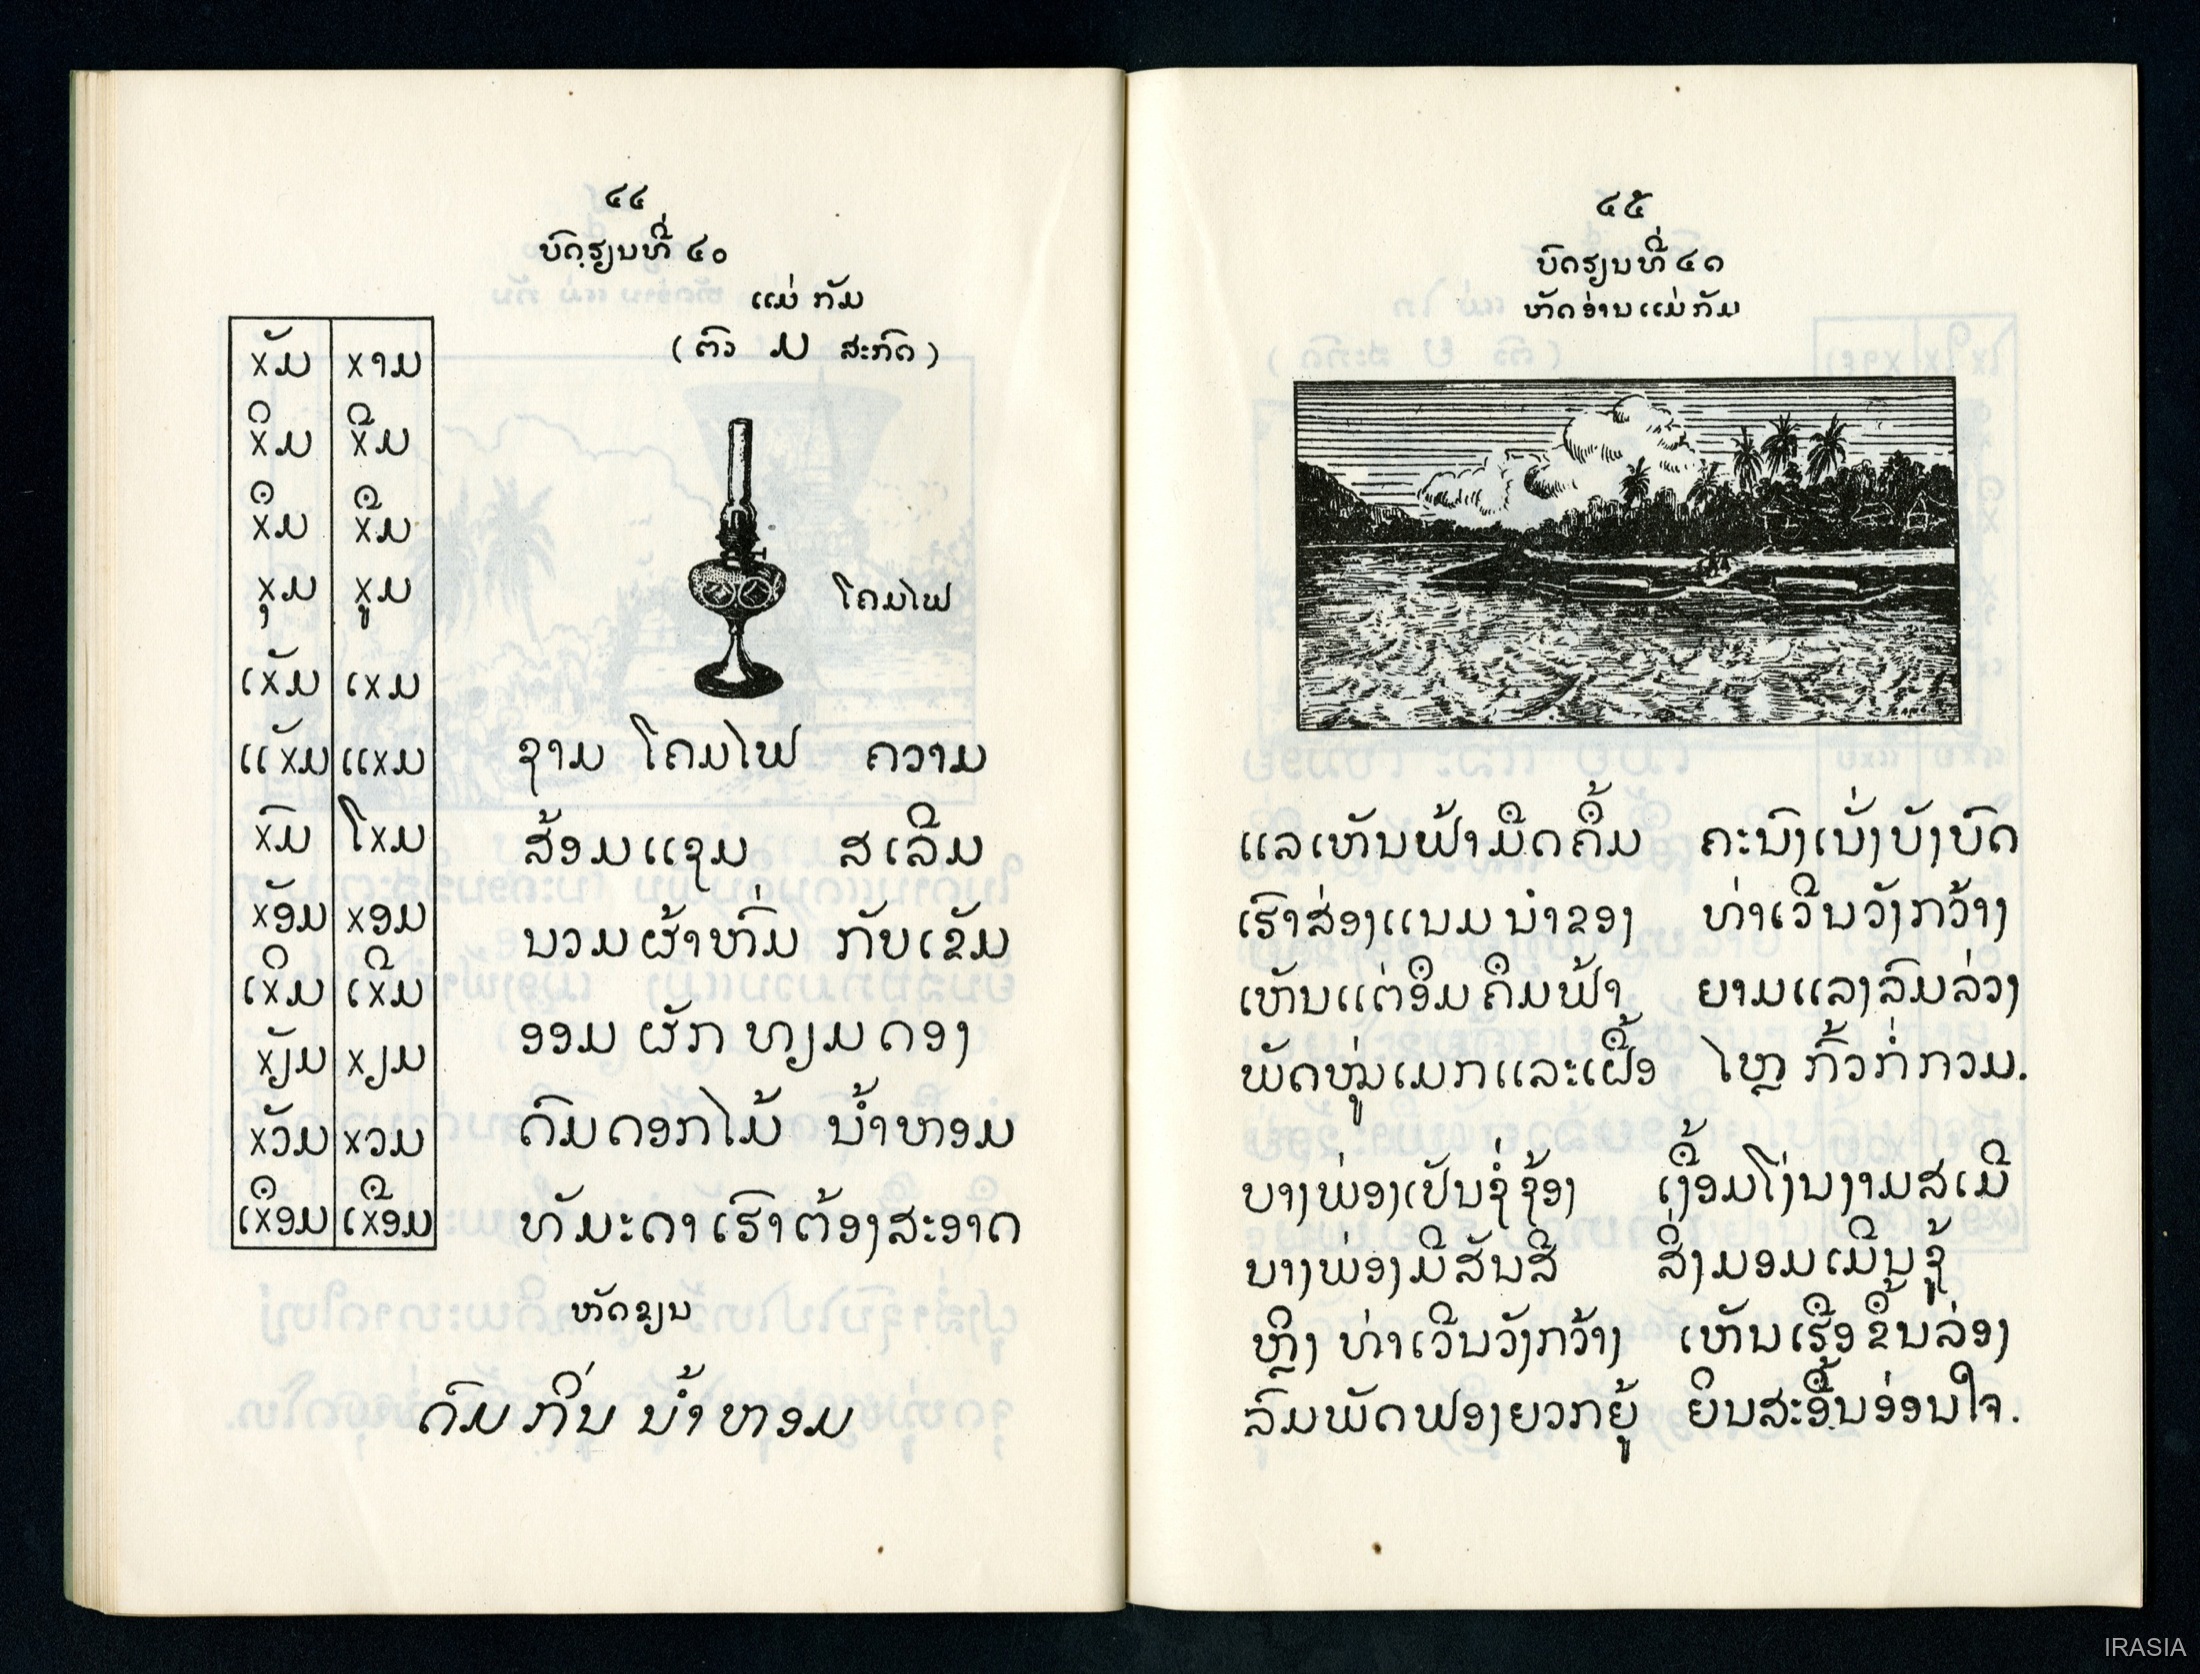 ໔໔
ບົດຮຽນທີ່ ໔໐
ແມ່ ກັມ
(ຕົວ ມ ສະກົດ)
xັມ xາມ
xິມ xີມ
xຶມ xືມ
xຸມ xູມ
ເxັມ ເxມ
ແxັມ ແxມ
xົມ ໂxມ
xັອມ xອມ
ເxິມ ເxີມ
xັຽມ xຽມ
xັວມ xວມ
ເxຶອມ ເxືອມ
ໂຄມໄຟ
ຊາມ ໂຄມໄຟ ຄວາມ
ສ້ອມແຊມ ສເລີມ
ນວມຜ້າຫົ່ມ ກັບເຂັມ
ອອມ ຜັກ ທຽມ ດອງ
ດົມດອກໄມ້ ນ້ຳຫອມ
ທັມະດາເຮົາຕ້ອງສະອາດ
ຫັດຂຽນ
ດົມ ກິ່ນ ນ້ຳ ຫອມ
໔໕
ບົດຮຽນທີ່ ໔໑
ຫັດອ່ານແມ່ກັມ
ແລເຫັນຟ້າມືດຄຶ້ມ ຄະນົງເນັ່ງບັງບົດ
ເຮົາສ່ອງແນມນຳຂອງ ທ່າເວີນວັງກວ້າງ
ເຫັນແຕ່ອຶມຄຶມຟ້າ ຍາມແລງລົມລ່ວງ
ພັດຫຼູ່ມເມກແລະເຝື້ອ ໄຫຼ ກົ້ວກໍ່ກວມ.
ບາງພ່ອງເປັນຊໍ່ຊ້ອງ ເງື້ອມໂງ່ນງາມສເມີ
ບາງພ່ອງມີສັນສີ ສິ່ງມອມເມີນຊູ້
ຫຼິງ ທ່າເວີນວັງກວ້າງ ເຫັນເຮືອຂຶ້ນລ່ອງ
ລົມພັດຟອງຍວກຍູ້ ຍິນສະອື້ນອ່ອນໃຈ.
IRASIA